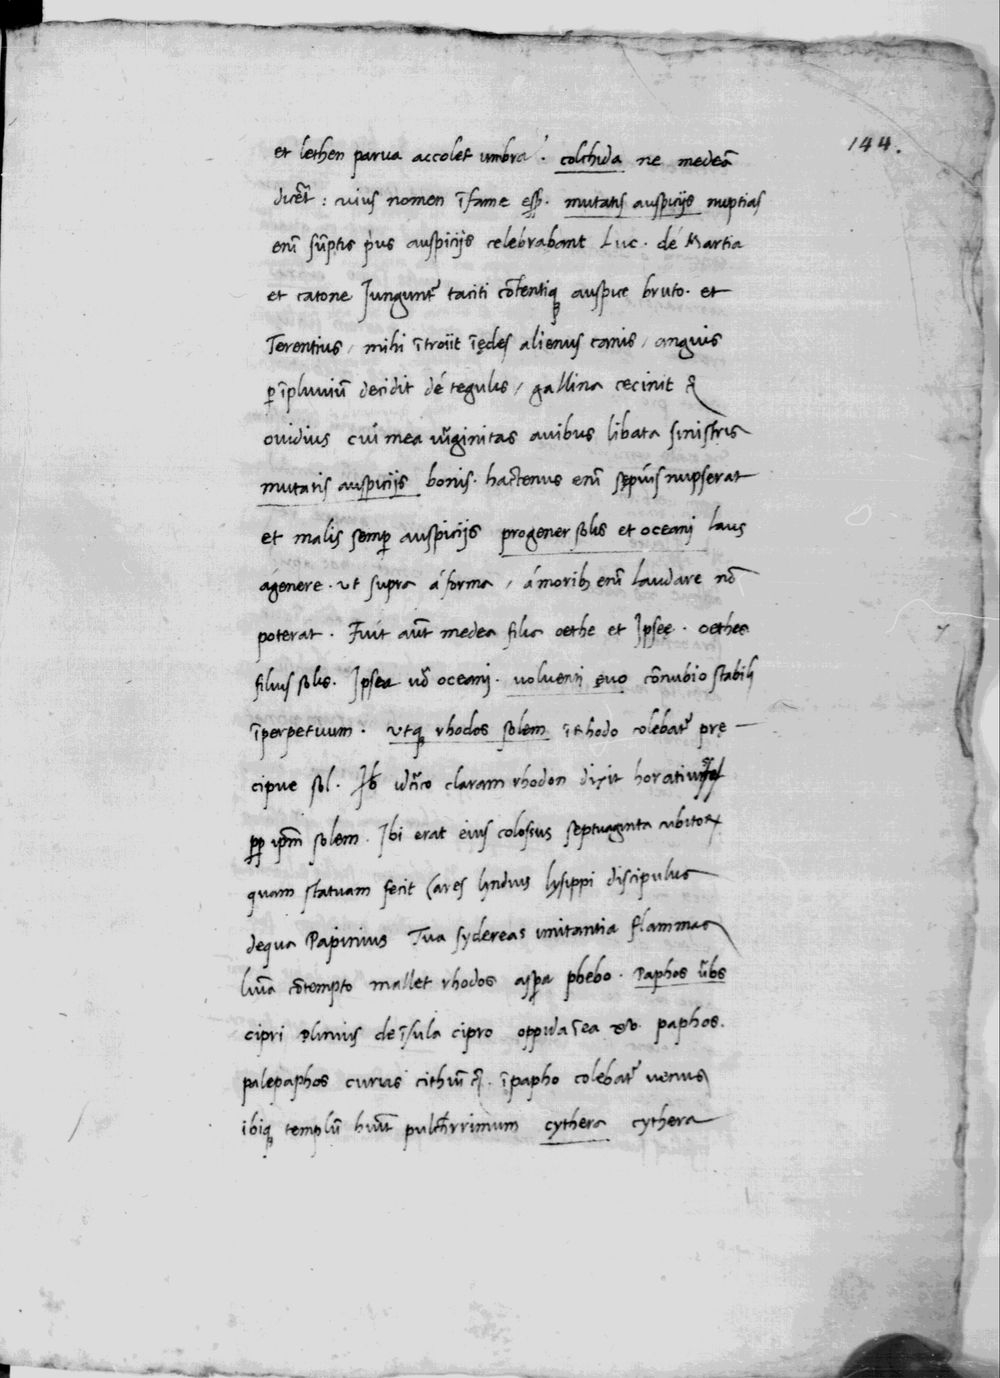 144.
et lethen parua accolet umbra. colchida ne medeā
dicēt: cuius nomen īfame eſſ3. mutatis auſpicijs nuptias
enī sūptis p̄us auſpicijs celebrabant Luc. dé Martia
et catone Jungunt᷑ taciti cōtentiq3 auſpice bruto. et
Terentius / mihi ītroiit īędes alienus canis / anguis
ꝑ īpluuiū decidit dé tegulis / gallina cecinit
ouidius cuí mea uirginitas auibus libata sinistris
mutatis auſpicijs bonis. hactenus enī sępiús nupserat
et malis semꝑ auſpicijs progener solis et oceani laus
ágenere. ut supra á forma / á morib3 enī laudare nō
poterat. Fuit aūt medea filia oethe et Jpseę. oethes
filius solis. Jpsea uō oceani. uoluenti ęuo cōnubio stabili
īperpetuum. utq3 rhodos solem ī rhodo colebat᷑ prę
cipue sol. Jb idcīco claram rhodon dixit horatius
ꝓp ipm̄ solem. Ibi erat eius colossus septuaginta cubitoꝝ
quam statuam fecit Cares lyndius lysippi discipulus
dequa Papinius Tua sydereas imitantia flammas
lumīa cōtempto mallet rhodos aspa phebo. Paphos ūbs
cipri plinius de īsula cipro oppida ī ea xv. paphos.
palepaphos curias ī papho colebat᷑ uenus
ibiq3 templū hūit pulcherrimum cythera cythera